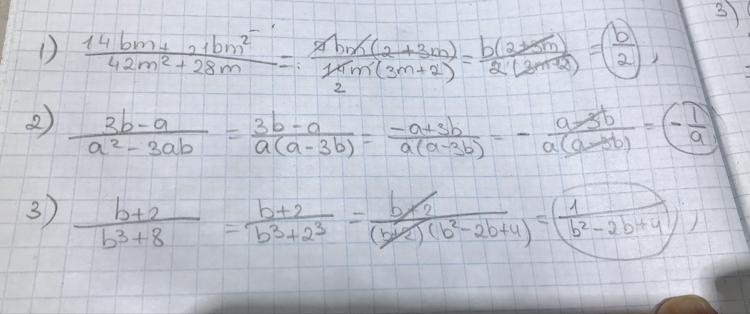 3)
1) (14bm + 21bm²)/(42m² + 28m) = (7bm(2+3m))/(14m(3m+2)) = (b(2+3m))/(2(3m+2)) = b/2,
2
2) (3b-a)/(a² - 3ab) = (3b-a)/(a(a-3b)) = (-a+3b)/(a(a-3b)) = - (a-3b)/(a(a-3b)) = - 1/a
3) (b+2)/(b³+8) = (b+2)/(b³+2³) = (b+2)/((b+2)(b²-2b+4)) = 1/(b²-2b+4),